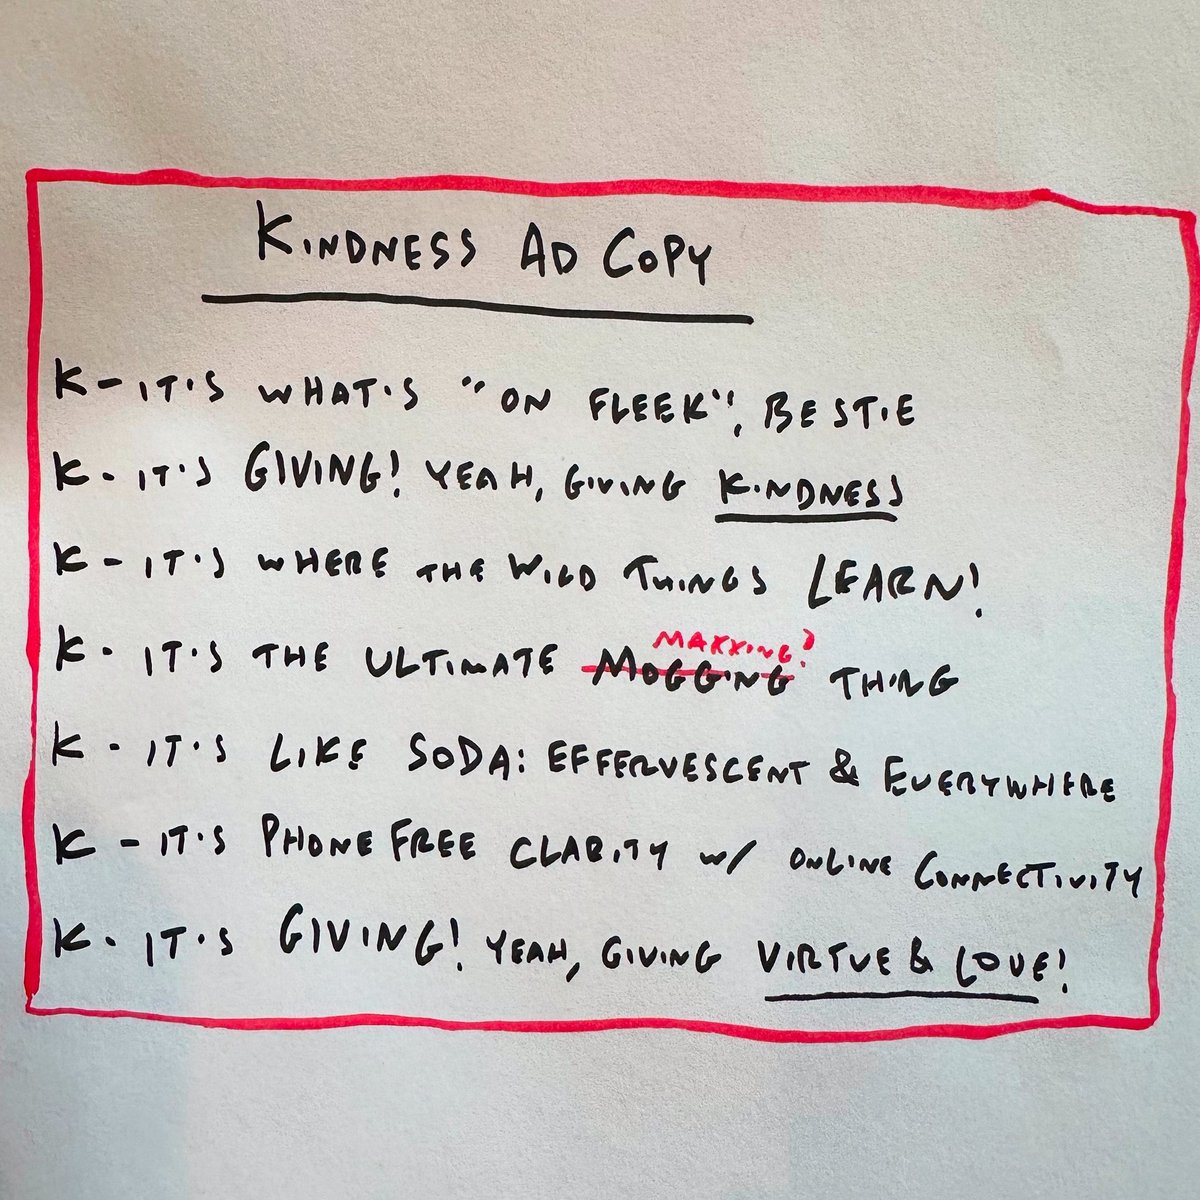 KINDNESS AD COPY
K - IT'S WHAT'S "ON FLEEK", BESTIE
K - IT'S GIVING! YEAH, GIVING KINDNESS
K - IT'S WHERE THE WILD THINGS LEARN!
MAXXING?
K - IT'S THE ULTIMATE MOGGING THING
K - IT'S LIKE SODA: EFFERVESCENT & EVERYWHERE
K - IT'S PHONE FREE CLARITY W/ ONLINE CONNECTIVITY
K - IT'S GIVING! YEAH, GIVING VIRTUE & LOVE!